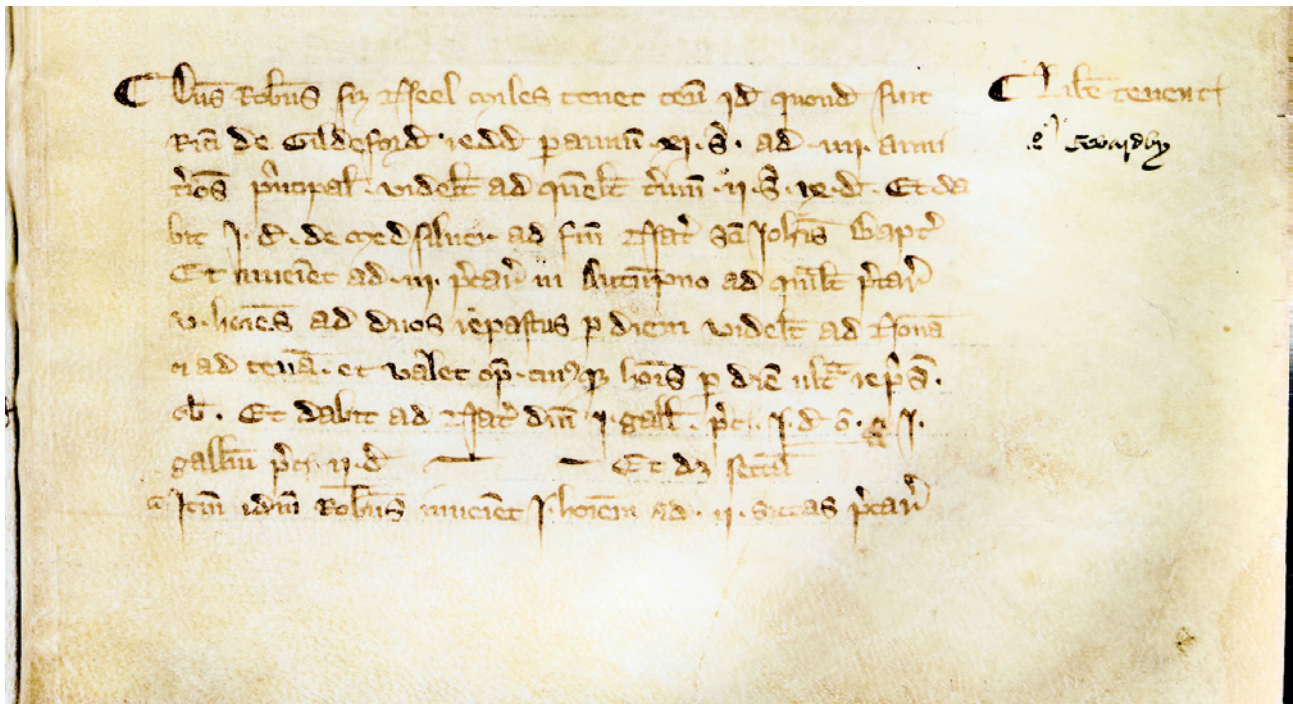 Dn̄s Rob̄tus fiz Neel Miles tenet ten̄ q̄d quond̄ fuit
Ric̄i de Gildeford redd̄ p annū xi. s̄. ad .iiii. anni
t̄ios p̄ncipal. videlt ad quēlt t̄mū .ii. s̄. ix. d̄. Et da
bit j. d̄. de Medsiluer ad fm̄ Nat̄ sc̄i Joh̄is Bapt̄
Et inveiet ad .iii. p̄car̄ in Autūpno ad quālt p̄car̄
v. hoīes ad duos repastus p diem videlt ad Nonā
et ad cenā. et valet op̄. cuiuscūq; hoīs p diē ult̄ rep̄s.
ob̄. Et dabit ad Nat̄ dn̄i j. gall̄. p̄c. j. d̄. o. j.
gallinā p̄c. ii. d̄ Et dz sectā
Itm̄ idm̄ Rob̄tus inveiet j. hoīem ad .ii. siccas p̄car̄
Lib̄e tenent
Swardby